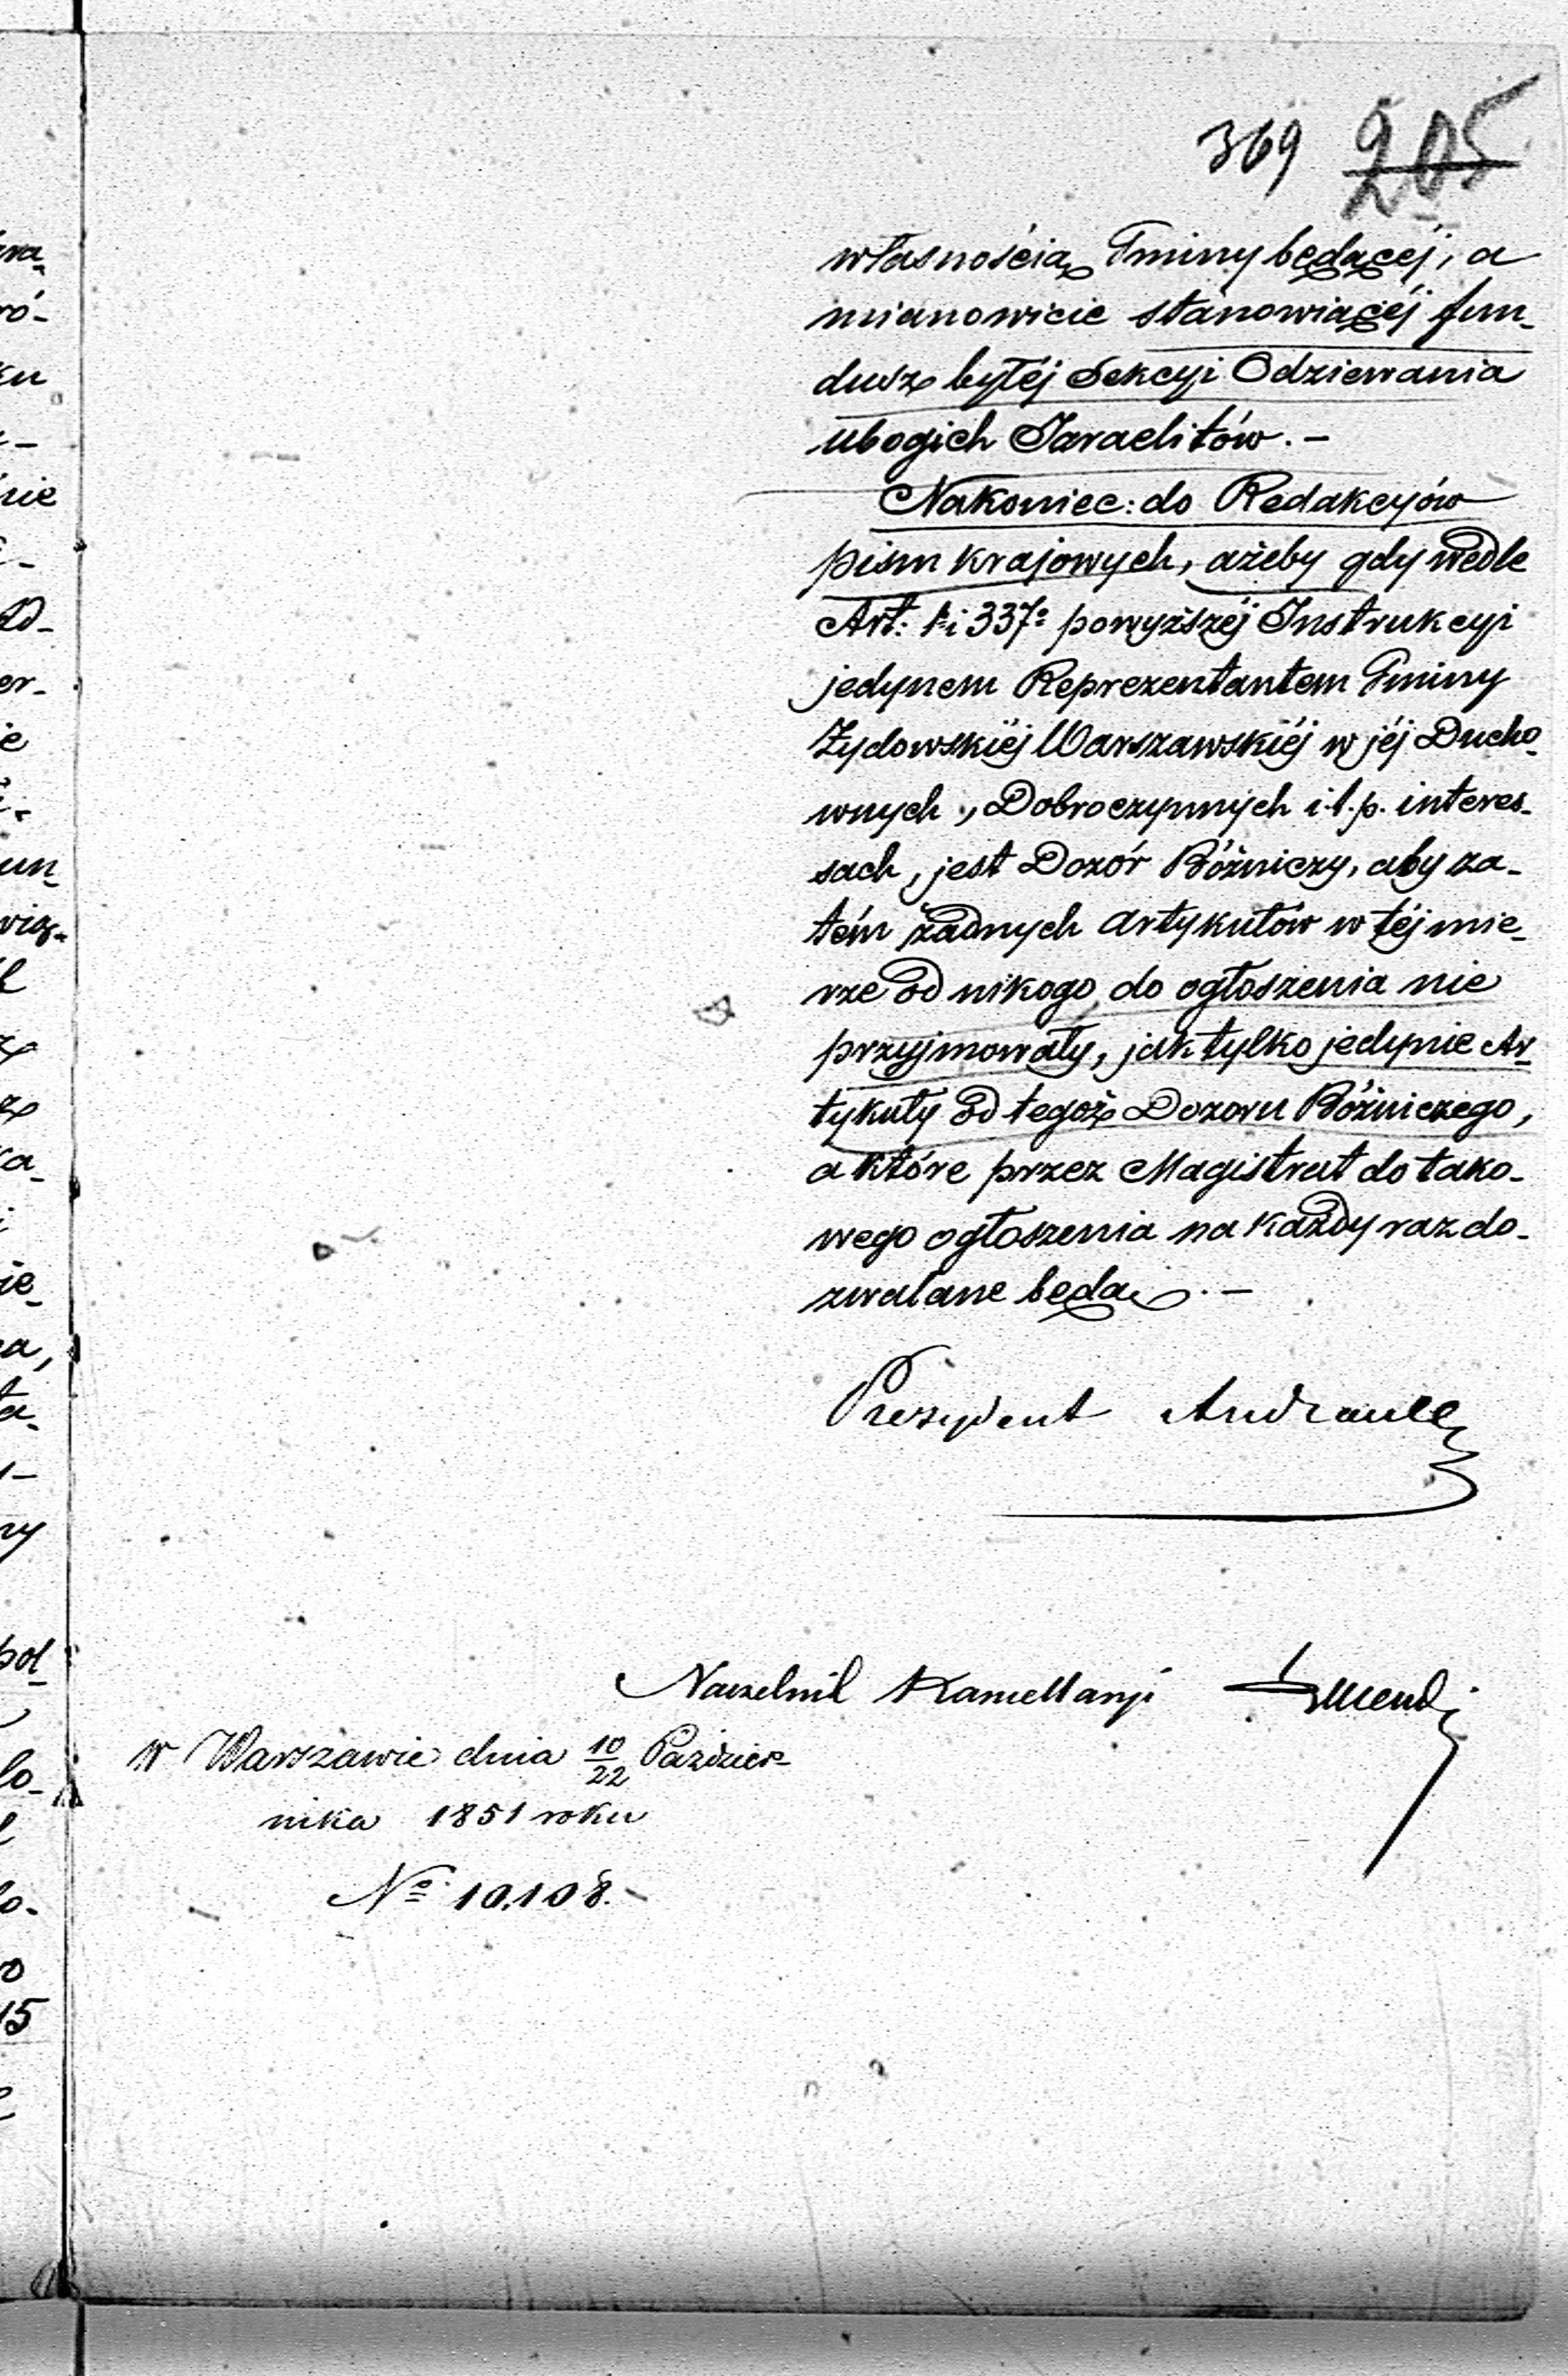 369 205
własnością Gminy będącéj, a
mianowicie stanowiącéj fun-
dusz byłéj Sekcyi Odziewania
ubogich Izraelitów. –
Nakoniec: do Redakcyów
pism krajowych, ażeby gdy wedle
Art: 1º i 337º powyższéj Instrukcyi
jedynem Reprezentantem Gminy
Żydowskiéj Warszawskiéj w jéj Ducho-
wnych, Dobroczynnych i t. p. interes-
sach, jest Dozór Bóżniczy, aby za-
tém żadnych artykułów w téj mie-
rze od nikogo do ogłoszenia nie
przyjmowały, jak tylko jedynie Ar-
tykuły od tegoż Dozoru Bóżniczego,
a które przez Magistrat do tako-
wego ogłoszenia na każdy raz do-
zwalane będą. –
Prezydent Andrault
Naczelnik Kancellaryi
w Warszawie dnia 10/22 Paździer-
nika 1851 roku
Nº 10,108. –